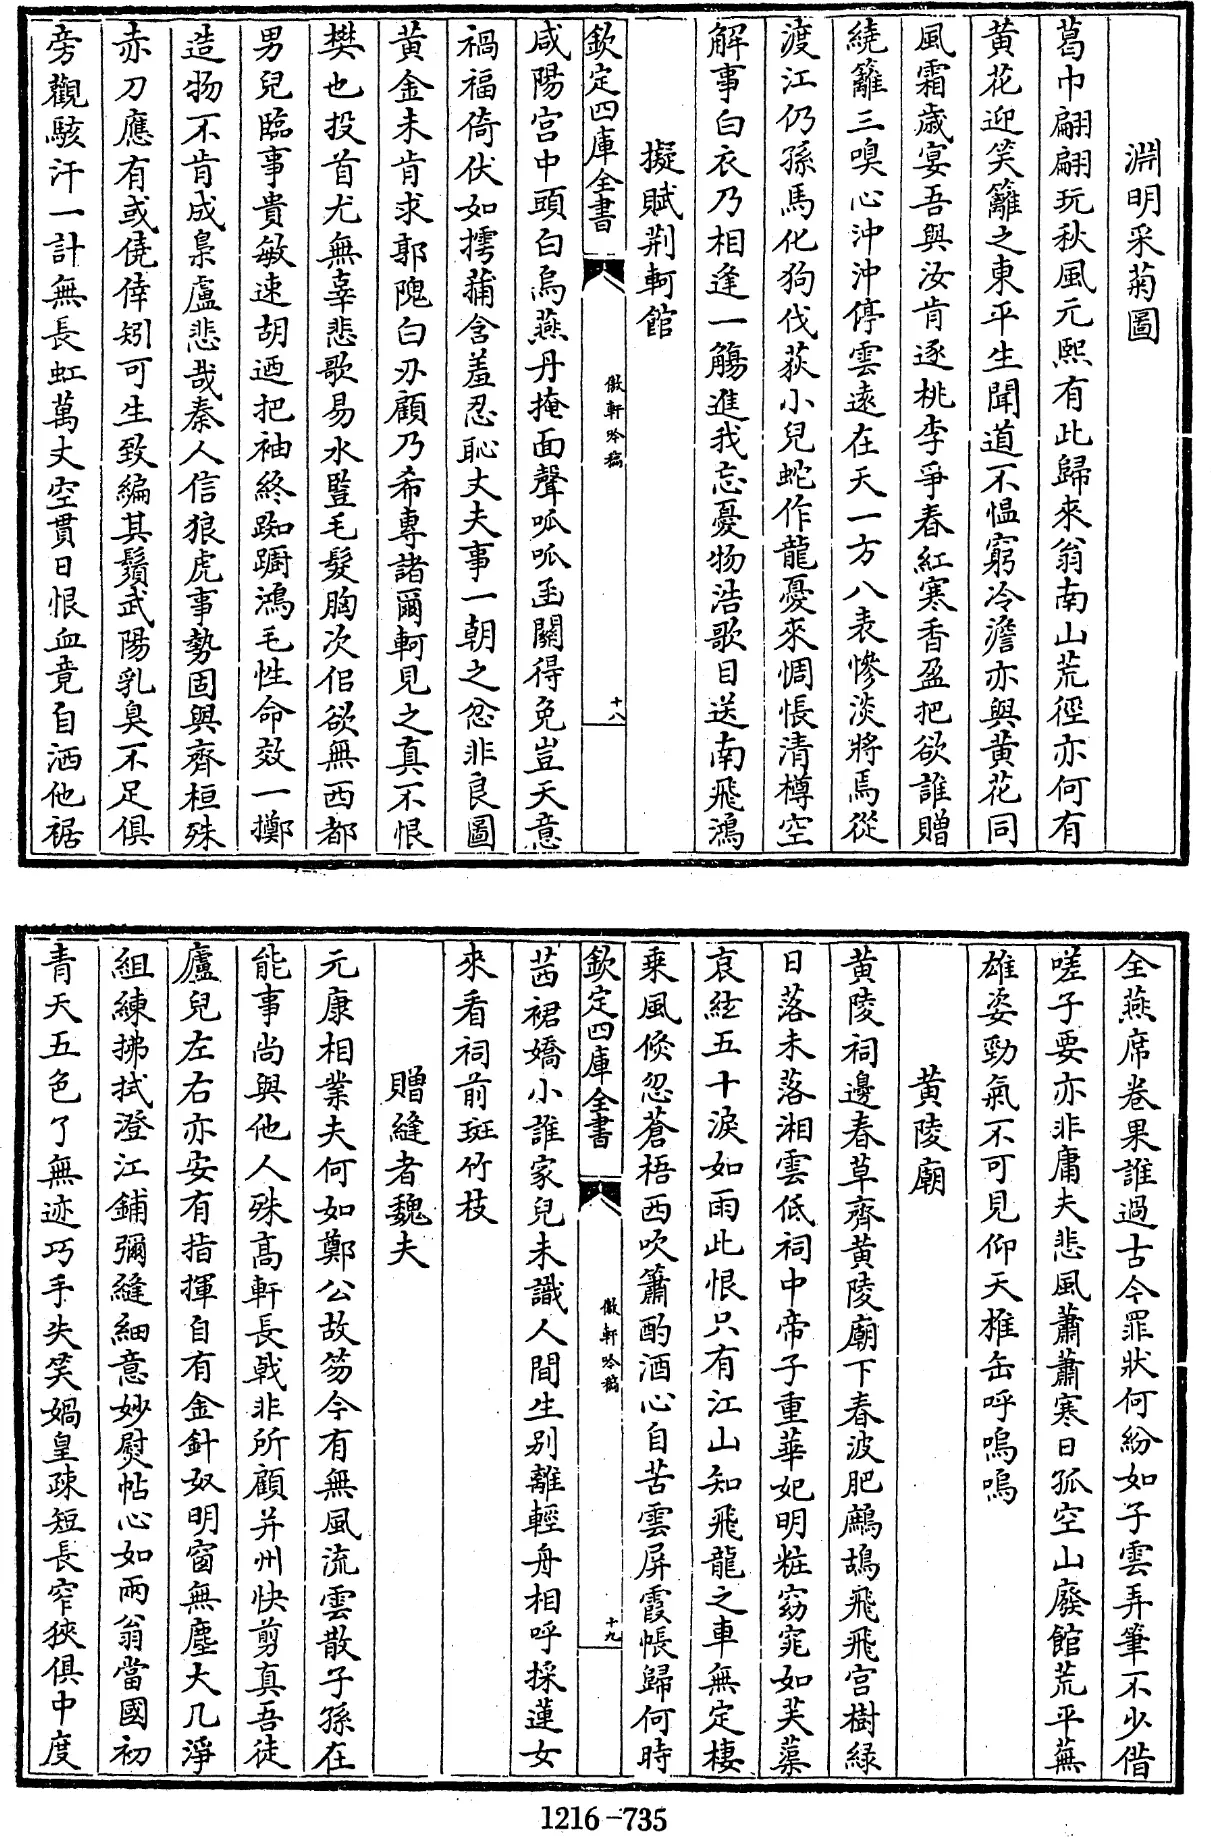 淵明采菊圖
葛巾翩翩玩秋風元熙有此歸來翁南山荒徑亦何有
黄花迎笑籬之東平生聞道不愠窮冷澹亦與黄花同
風霜歳宴吾與汝肯逐桃李爭春紅寒香盈把欲誰贈
繞籬三嗅心沖沖停雲遠在天一方八表慘淡將焉從
渡江仍孫馬化狗伐荻小兒蛇作龍憂來惆悵清樽空
解事白衣乃相逢一觴進我忘憂物浩歌目送南飛鴻
擬賦荆軻館
欽定四庫全書
傲軒吟稿
十八
咸陽宫中頭白烏燕丹掩面聲呱呱函關得免豈天意
禍福倚伏如摴蒱含羞忍恥丈夫事一朝之忿非良圖
黄金未肯求郭隗白刃顧乃希專諸爾軻見之真不恨
樊也投首尤無辜悲歌易水豎毛髮胸次佀欲無西都
男兒臨事貴敏速胡迺把袖終踟蹰鴻毛性命效一擲
造物不肯成梟盧悲哉秦人信狼虎事勢固與齊桓殊
赤刀應有或僥倖矧可生致編其鬚武陽乳臭不足俱
旁觀駭汗一計無長虹萬丈空貫日恨血竟自洒他裾
全燕席卷果誰過古今罪狀何紛如子雲弄筆不少借
嗟子要亦非庸夫悲風蕭蕭寒日孤空山廢館荒平蕪
雄姿勁氣不可見仰天椎缶呼嗚嗚
黄陵廟
黄陵祠邊春草齊黄陵廟下春波肥鷓鴣飛飛宫樹緑
日落未落湘雲低祠中帝子重華妃明粧窈窕如芙蕖
哀絃五十淚如雨此恨只有江山知飛龍之車無定棲
乘風倐忽蒼梧西吹簫酌酒心自苦雲屏霞帳歸何時
欽定四庫全書
傲軒吟稿
十九
茜裙嬌小誰家兒未識人間生别離輕舟相呼採蓮女
來看祠前斑竹枝
贈縫者魏夫
元康相業夫何如鄭公故笏今有無風流雲散子孫在
能事尚與他人殊高軒長戟非所顧并州快剪真吾徒
廬兒左右亦安有指揮自有金針奴明窗無塵大几淨
組練拂拭澄江鋪彌縫細意妙熨帖心如兩翁當國初
青天五色了無迹巧手失笑媧皇疎短長窄狹俱中度
1216-735